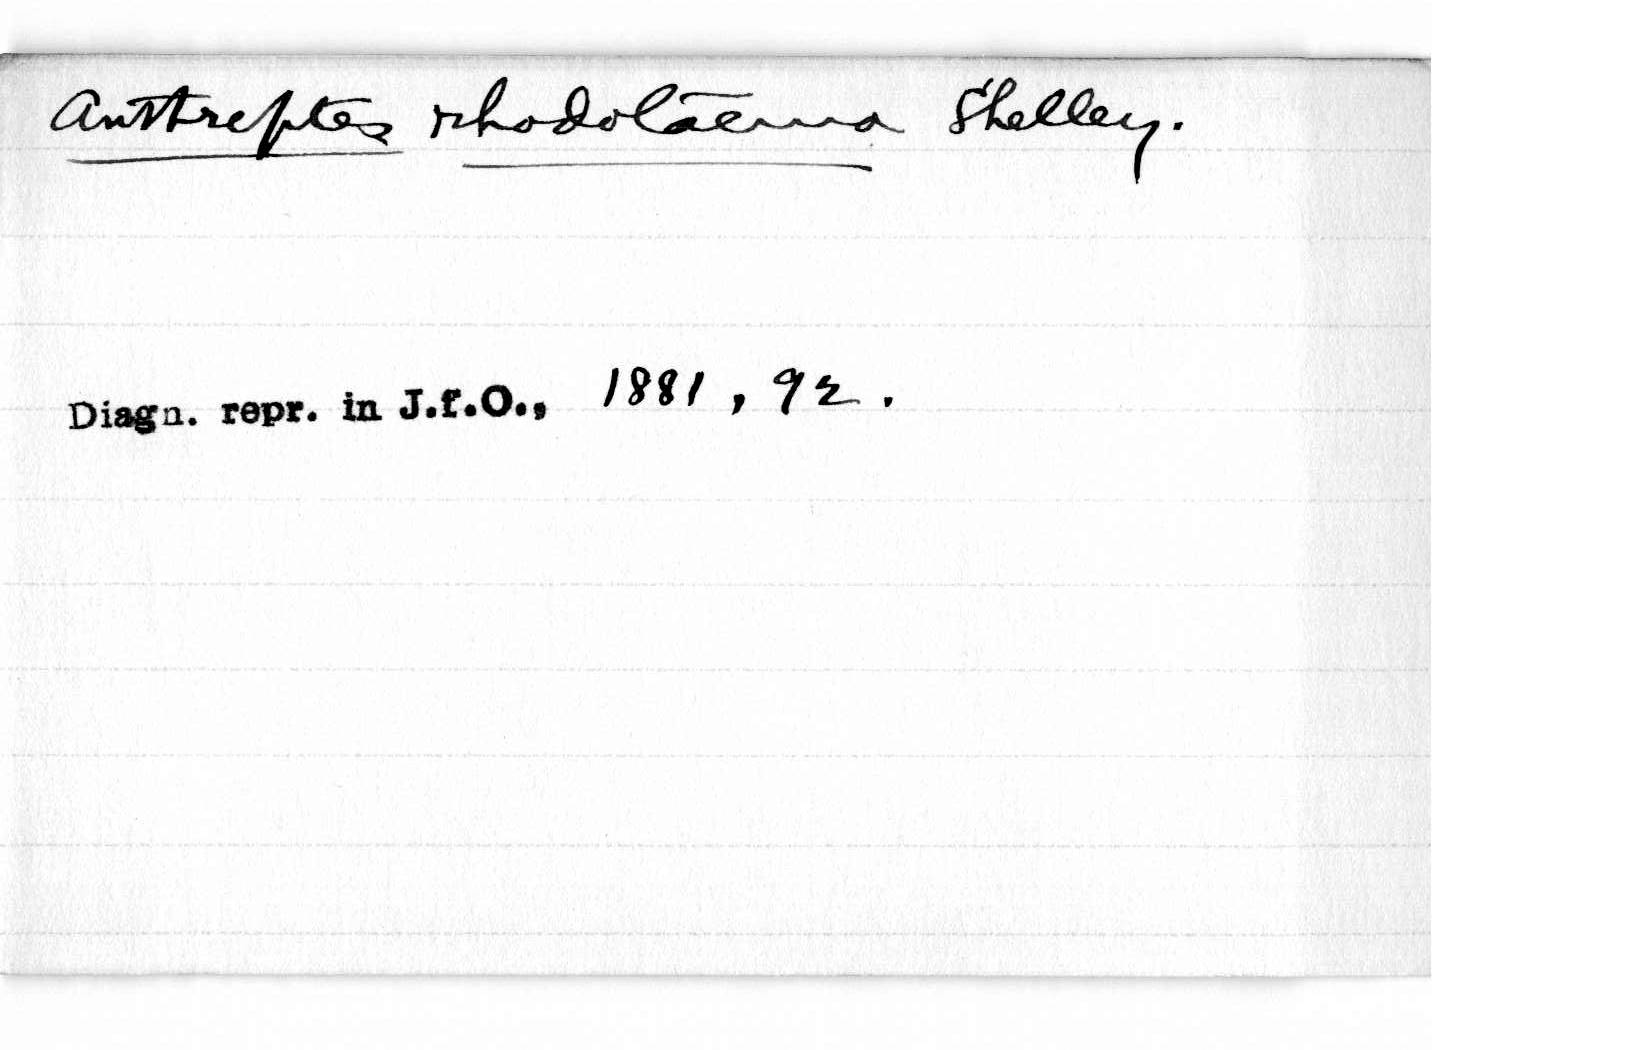 Anthreptes rhodolaema Shelley.
Diagn. repr. in J.f.O., 1881, 92.